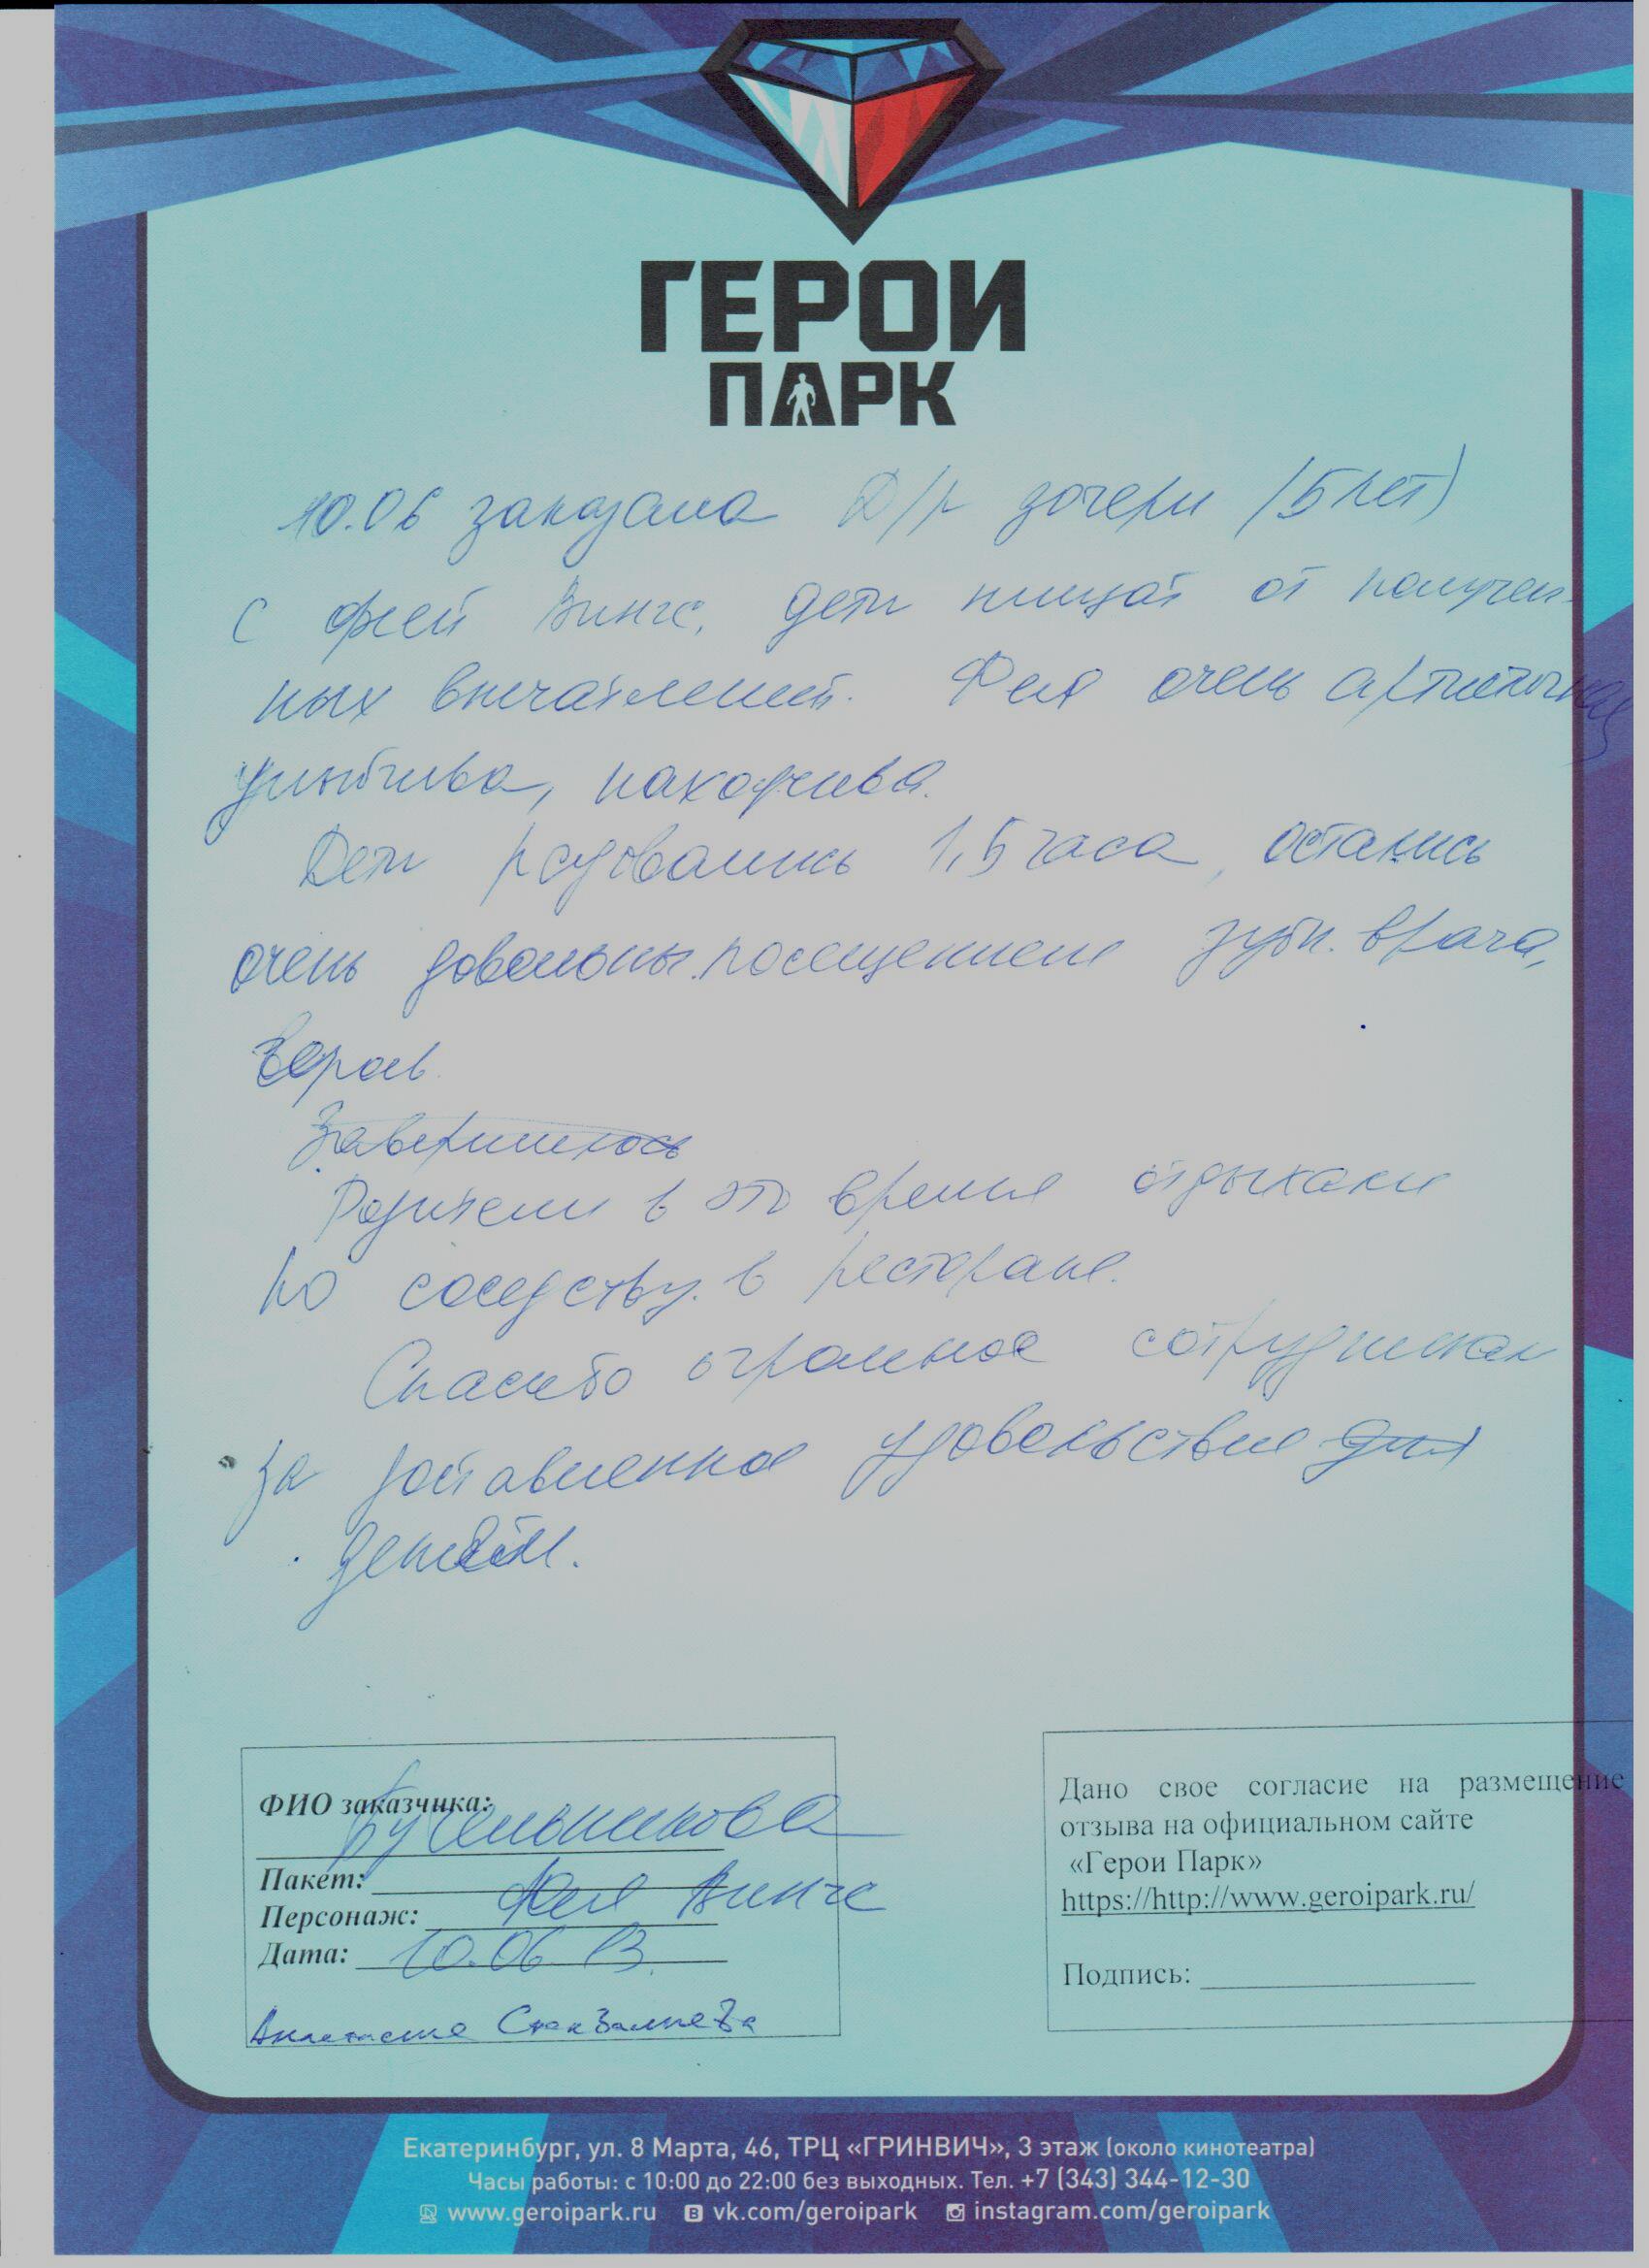 ГЕРОИ
ПАРК
10.06 заказала Д/р дочери (5 лет)
с феей Винкс, дети пищат от получен-
ных впечатлений. Фея очень артистична,
улыбчива, находчива.
Дети радовались 1,5 часа, остались
очень довольны посещением зубн. врача,

Завершилось
Родители в это время отдыхали
по соседству в ресторане.
Спасибо огромное сотрудникам
за доставленное удовольствие для
детям.
ФИО заказчика:
Пакет:
Персонаж: Фея Винкс
Дата: 10.06.
Анастасия
Дано свое согласие на размещение
отзыва на официальном сайте
«Герои Парк»
https://http://www.geroipark.ru/
Подпись:
Екатеринбург, ул. 8 Марта, 46, ТРЦ «ГРИНВИЧ», 3 этаж (около кинотеатра)
Часы работы: с 10:00 до 22:00 без выходных. Тел. +7 (343) 344-12-30
www.geroipark.ru vk.com/geroipark instagram.com/geroipark